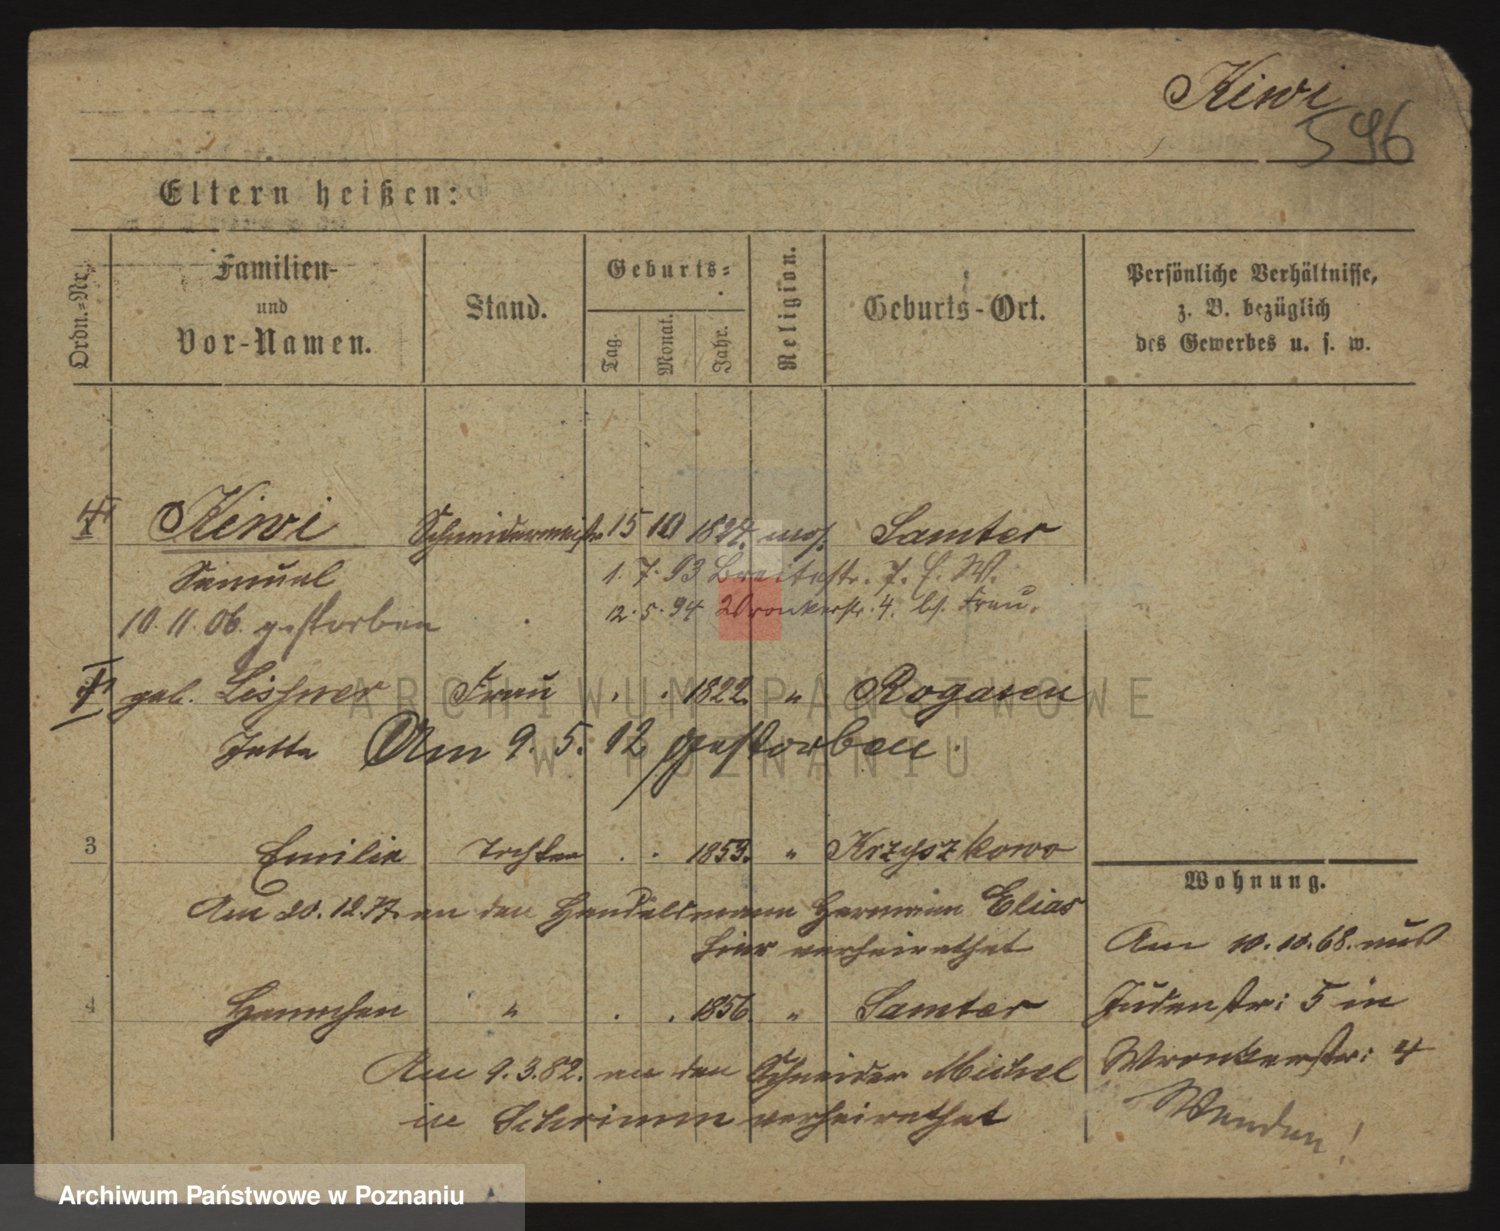 Kiwi
596
Eltern heißen:
Ordn.-Nr.
Familien- und Vor-Namen.
Stand.
Geburts-
Tag.
Monat.
Jahr.
Religion.
Geburts-Ort.
Persönliche Verhältnisse,
z. B. bezüglich
des Gewerbes u. s. w.
Kiwi Schneidermeistr 15 10 mos. Samter
Samuel 1. 7. 93 Breitestr. 7. h. W.
10. 11. 06. gestorben 12. 5. 94 Wronkerstr. 4. b. Frau.
geb. Lissner Frau . . 1822. " Rogasen
Jette Am 9. 5. 12 gestorben.
3 Emilie Tochter . . 1853. " Krzyszkowo
Am 20. 12. 77. an den Handelsmann Hermann Elias
hier verheirathet
4 Hannchen " . . 1856. " Samter
Am 9. 3. 82. an den Schneider Michel
in Schrimm verheirathet
Wohnung.
Am 10. 10. 68. aus
Judenstr: 5 in
Wronkerstr: 4
Wenden!
ARCHIWUM PAŃSTWOWE
W POZNANIU
Archiwum Państwowe w Poznaniu